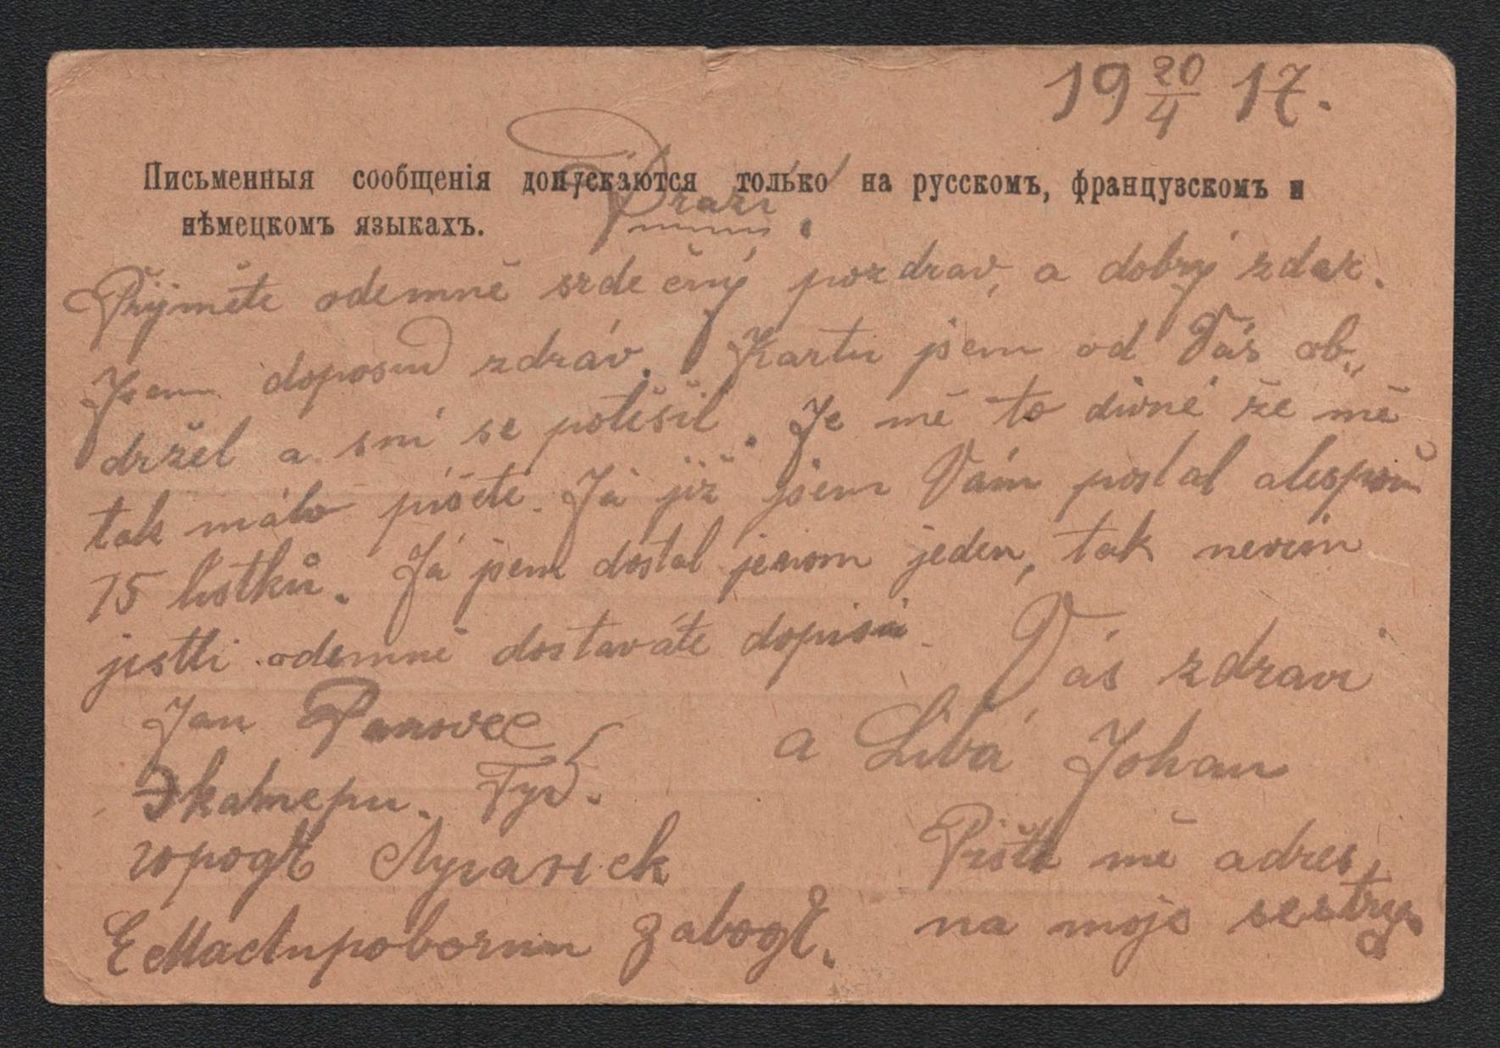 19 20/4 17.
Письменныя сообщенія допускаются только на русскомъ, французскомъ и
нѣмецкомъ языкахъ.
Drazí
Přijměte odemně srdečný pozdrav, a dobrý zdar.
Jsem doposud zdráv. Kartu jsem od Vás ob„
držel a sní se potěšil. Je mě to divné že mě
tak málo píšete. Já již jsem Vám poslal alespoň
15 lístků. Já jsem dostal jenom jeden, tak nevím
jestli odemně dostaváte dopisů.
Vás zdraví
Jan
a Libá Johan
Экатери. Губ.
городѣ Луганск
Pište mě adres
на moje sestry.
Заводѣ.